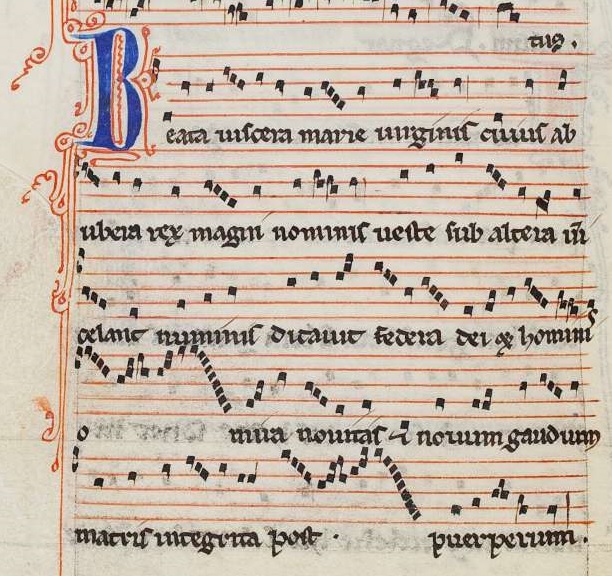 tus.
Beata uiscera marie uirginis cuius ab
ubera rex magni nominis ueste sub altera uim
celant numinis dictauit federa dei & hominis
o mira nouitas & nouum gaudium
matris integrita post puerperium.